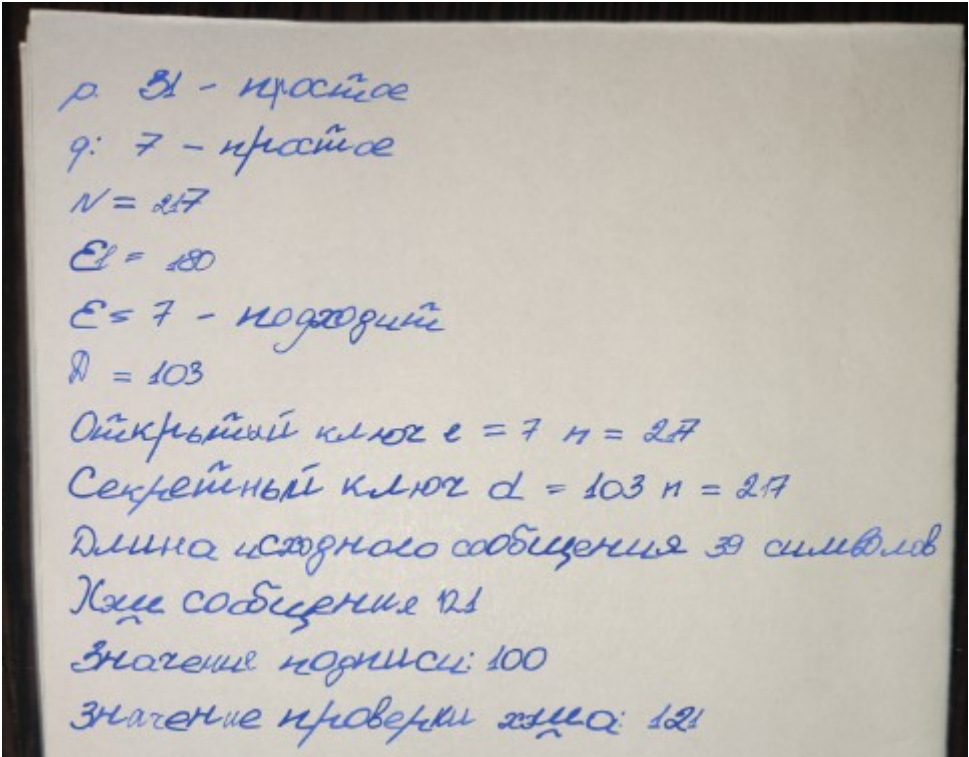 p. 31 - простое
q: 7 - простое
N = 217
E1 = 180
E = 7 - подходит
D = 103
Открытый ключ e = 7 n = 217
Секретный ключ d = 103 n = 217
Длина исходного сообщения 39 символов
Хэш сообщения 121
Значение подписи: 100
Значение проверки хэша: 121